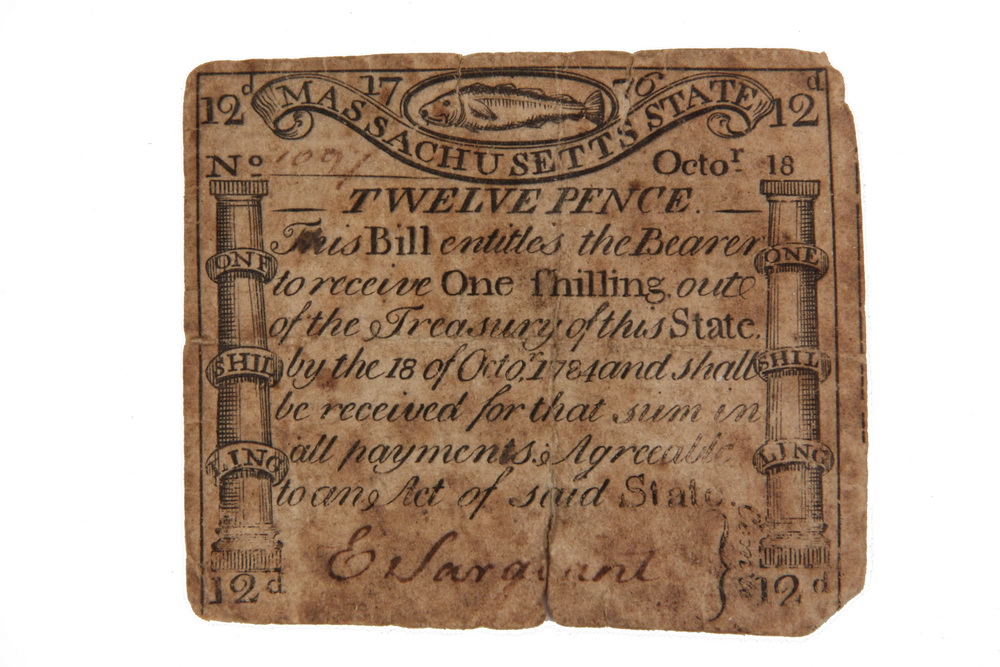 12d 17 76 12d
MASSACHUSETTS STATE
No 1097 Octor 18
TWELVE PENCE.
This Bill entitles the Bearer
to receive One ſhilling out
of the Treasury of this State.
by the 18 of Octor. 1784 and shall
be received for that sum in
all payments; Agreeable
to an Act of said State.
ONE
SHIL
LING
ONE
SHIL
LING
E Sargeant
Comte
12d 12d